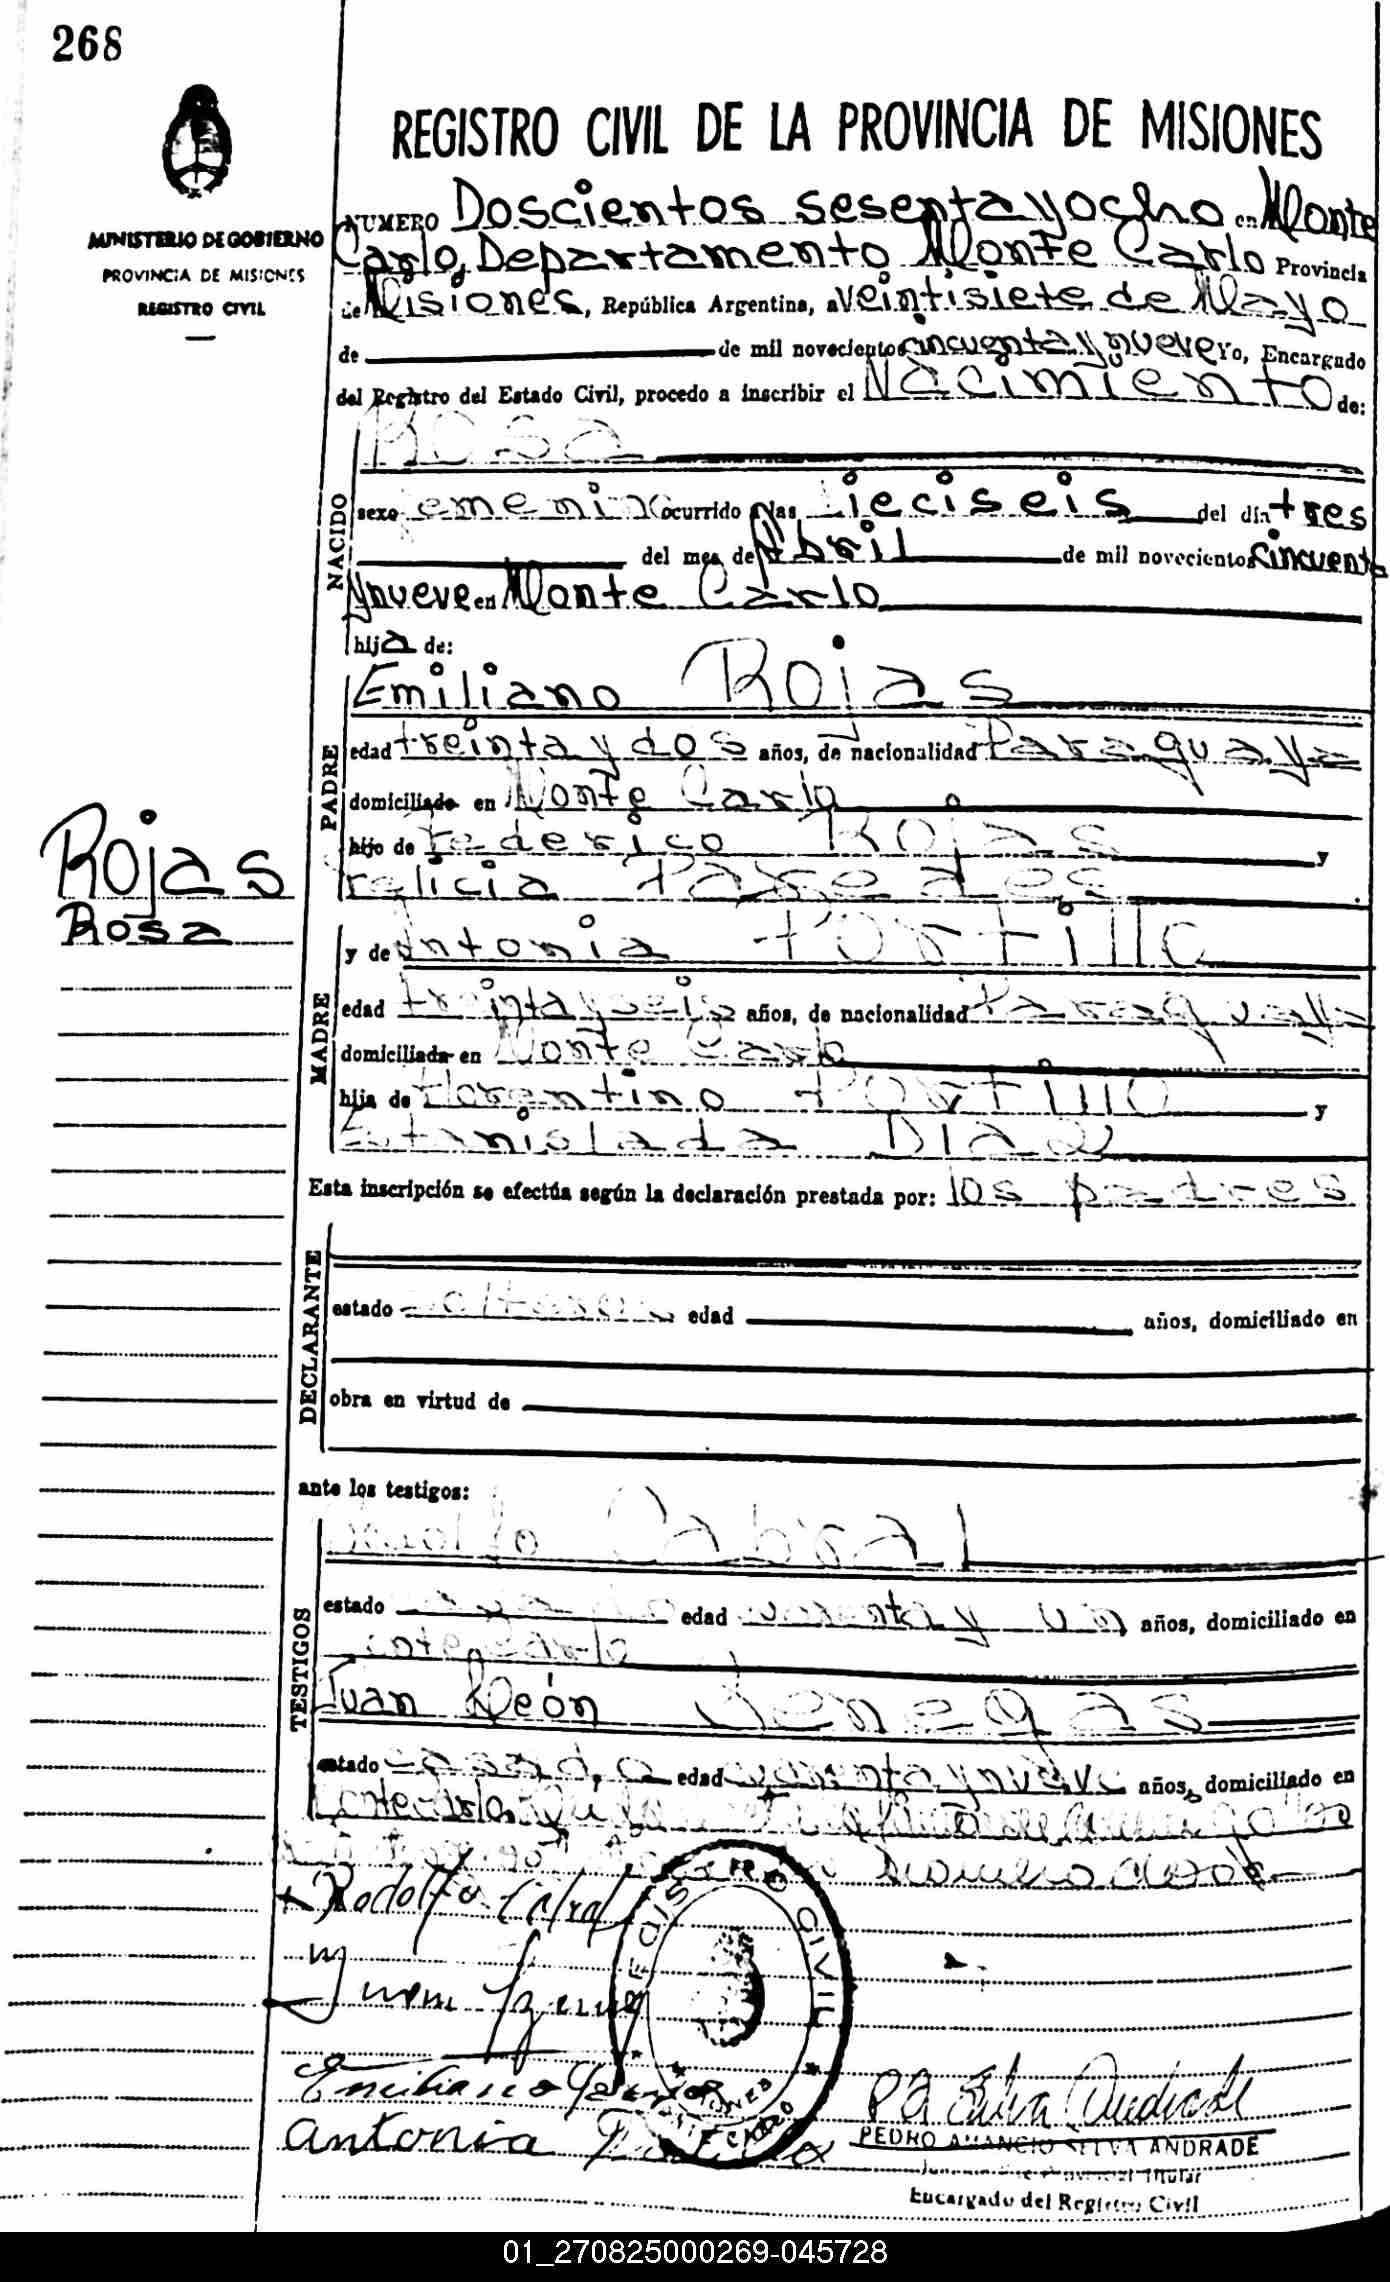 268
REGISTRO CIVIL DE LA PROVINCIA DE MISIONES
MINISTERIO DE GOBIERNO
PROVINCIA DE MISIONES
REGISTRO CIVIL
NUMERO Doscientos sesenta y ocho en Monte
Carlo, Departamento Monte Carlo Provincia
de Misiones, República Argentina, a veintisiete de Mayo
de de mil novecientos cincuenta y nueve Yo, Encargado
del Registro del Estado Civil, procedo a inscribir el Nacimiento de:
NACIDO
Rosa
sexo femenino ocurrido a las dieciseis del día tres
del mes de Abril de mil novecientos cincuenta
y nueve en Monte Carlo
hija de:
PADRE
Emiliano Rojas
edad treinta y dos años, de nacionalidad Paraguaya
domiciliado en Monte Carlo
hijo de Federico Rojas y
Felicia Paredes
Rojas
Rosa
MADRE
y de Antonia Portillo
edad treinta y seis años, de nacionalidad Paraguaya
domiciliada en Monte Carlo
hija de Florentino Portillo y
Estanislada Diaz
Esta inscripción se efectúa según la declaración prestada por: los padres
DECLARANTE
estado solteros edad años, domiciliado en
obra en virtud de
ante los testigos:
TESTIGOS
Rodolfo Cabral
estado edad cuarenta y un años, domiciliado en
Montecarlo
Juan León Venegas
estado casado edad cuarenta y nueve años, domiciliado en
Montecarlo
Rodolfo Cabral
Juan
Emiliano
Antonia Portillo
REGISTRO CIVIL
MISIONES
MONTE CARLO
PA Silva Andrade
PEDRO AMANCIO SILVA ANDRADE
Titular
Encargado del Registro Civil
01_270825000269-045728